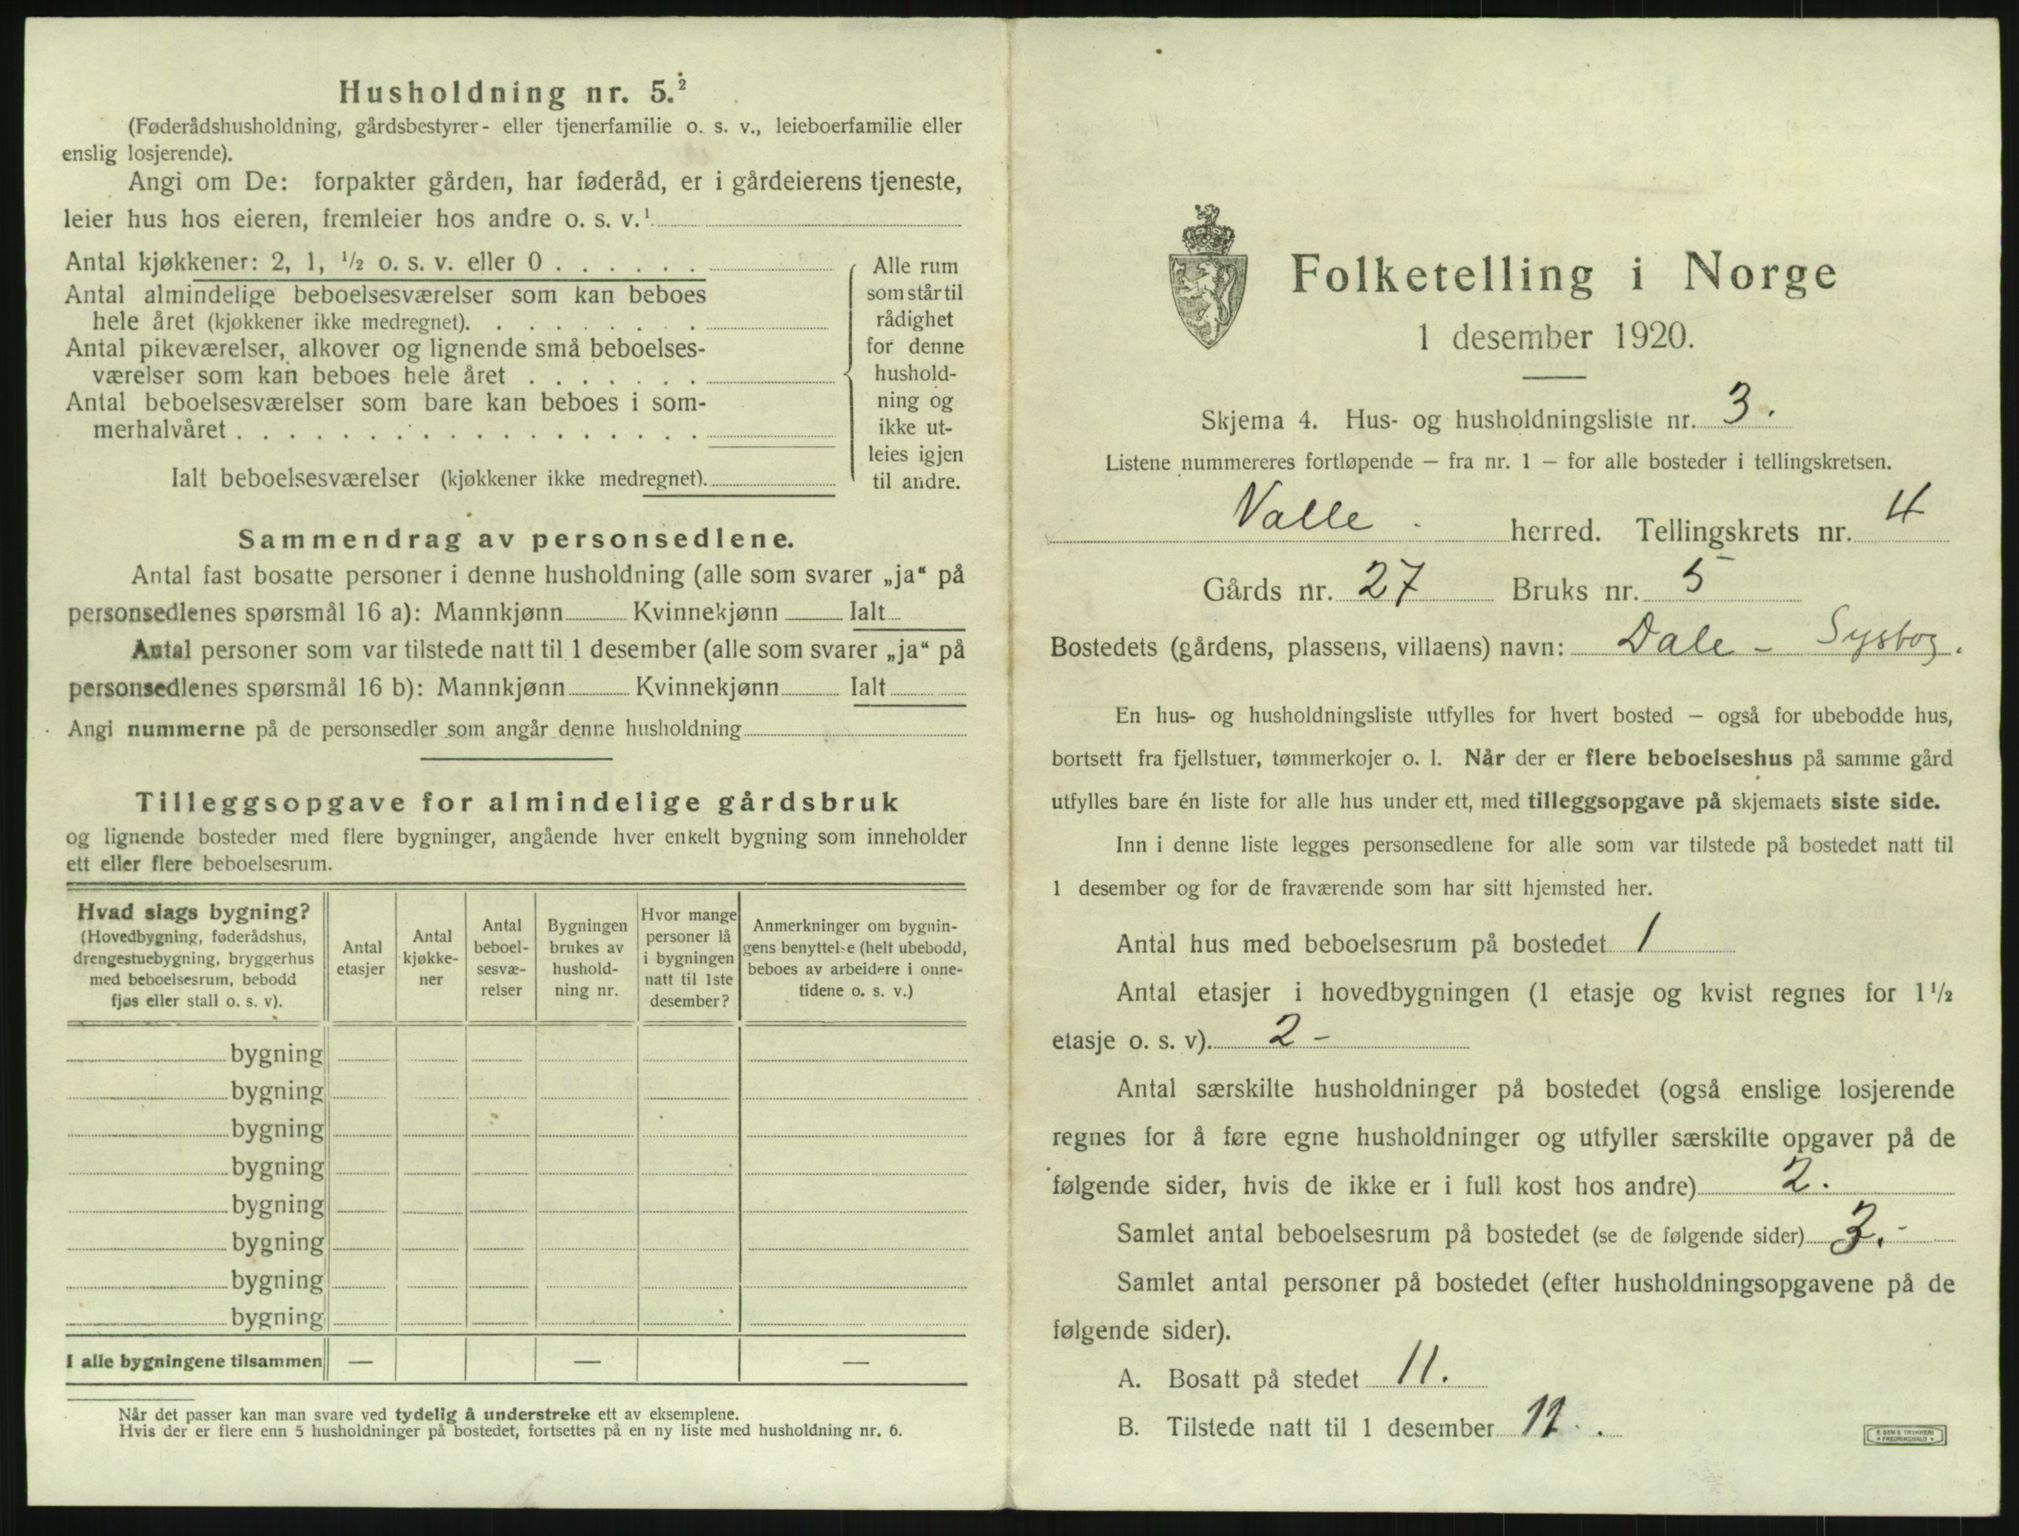 Husholdning nr. 5.²
(Føderådshusholdning, gårdsbestyrer- eller tjenerfamilie o. s. v., leieboerfamilie eller
enslig losjerende).
Angi om De: forpakter gården, har føderåd, er i gårdeierens tjeneste,
leier hus hos eieren, fremleier hos andre o. s. v.¹
Antal kjøkkener: 2, 1, ½ o. s. v. eller 0 . . . . . .
Antal almindelige beboelsesværelser som kan beboes
hele året (kjøkkener ikke medregnet). . . . . . . . .
Antal pikeværelser, alkover og lignende små beboelses-
værelser som kan beboes hele året . . . . . . .
Antal beboelsesværelser som bare kan beboes i som-
merhalvåret . . . . . . . . . . . . . . . . . .
Ialt beboelsesværelser (kjøkkener ikke medregnet).
Alle rum
som står til
rådighet
for denne
hushold-
ning og
ikke ut-
leies igjen
til andre.
Sammendrag av personsedlene.
Antal fast bosatte personer i denne husholdning (alle som svarer „ja“ på
personsedlenes spørsmål 16 a): Mannkjønn Kvinnekjønn Ialt
Antal personer som var tilstede natt til 1 desember (alle som svarer „ja“ på
personsedlenes spørsmål 16 b): Mannkjønn Kvinnekjønn Ialt
Angi nummerne på de personsedler som angår denne husholdning
Tilleggsopgave for almindelige gårdsbruk
og lignende bosteder med flere bygninger, angående hver enkelt bygning som inneholder
ett eller flere beboelsesrum.
Hvad slags bygning?
(Hovedbygning, føderådshus,
drengestuebygning, bryggerhus
med beboelsesrum, bebodd
fjøs eller stall o. s. v).
Antal
etasjer
Antal
kjøkke-
ner
Antal
beboel-
sesvæ-
relser
Bygningen
brukes av
hushold-
ning nr.
Hvor mange
personer lå
i bygningen
natt til 1ste
desember?
Anmerkninger om bygnin-
gens benyttelse (helt ubebodd,
beboes av arbeidere i onne-
tidene o. s. v.)
bygning
bygning
bygning
bygning
bygning
bygning
bygning
bygning
I alle bygningene tilsammen — — —
Når det passer kan man svare ved tydelig å understreke ett av eksemplene.
Hvis der er flere enn 5 husholdninger på bostedet, fortsettes på en ny liste med husholdning nr. 6.
Folketelling i Norge
1 desember 1920.
Skjema 4. Hus- og husholdningsliste nr. 3.
Listene nummereres fortløpende – fra nr. 1 – for alle bosteder i tellingskretsen.
Valle . herred. Tellingskrets nr. 4
Gårds nr. 27 Bruks nr. 5
Bostedets (gårdens, plassens, villaens) navn: Dale - Sysbog.
En hus- og husholdningsliste utfylles for hvert bosted – også for ubebodde hus,
bortsett fra fjellstuer, tømmerkojer o. l. Når der er flere beboelseshus på samme gård
utfylles bare én liste for alle hus under ett, med tilleggsopgave på skjemaets siste side.
Inn i denne liste legges personsedlene for alle som var tilstede på bostedet natt til
1 desember og for de fraværende som har sitt hjemsted her.
Antal hus med beboelsesrum på bostedet 1
Antal etasjer i hovedbygningen (1 etasje og kvist regnes for 1½
etasje o. s. v). 2 -
Antal særskilte husholdninger på bostedet (også enslige losjerende
regnes for å føre egne husholdninger og utfyller særskilte opgaver på de
følgende sider, hvis de ikke er i full kost hos andre) 2.
Samlet antal beboelsesrum på bostedet (se de følgende sider) 3. -
Samlet antal personer på bostedet (efter husholdningsopgavene på de
følgende sider).
A. Bosatt på stedet 11.
B. Tilstede natt til 1 desember 11 .